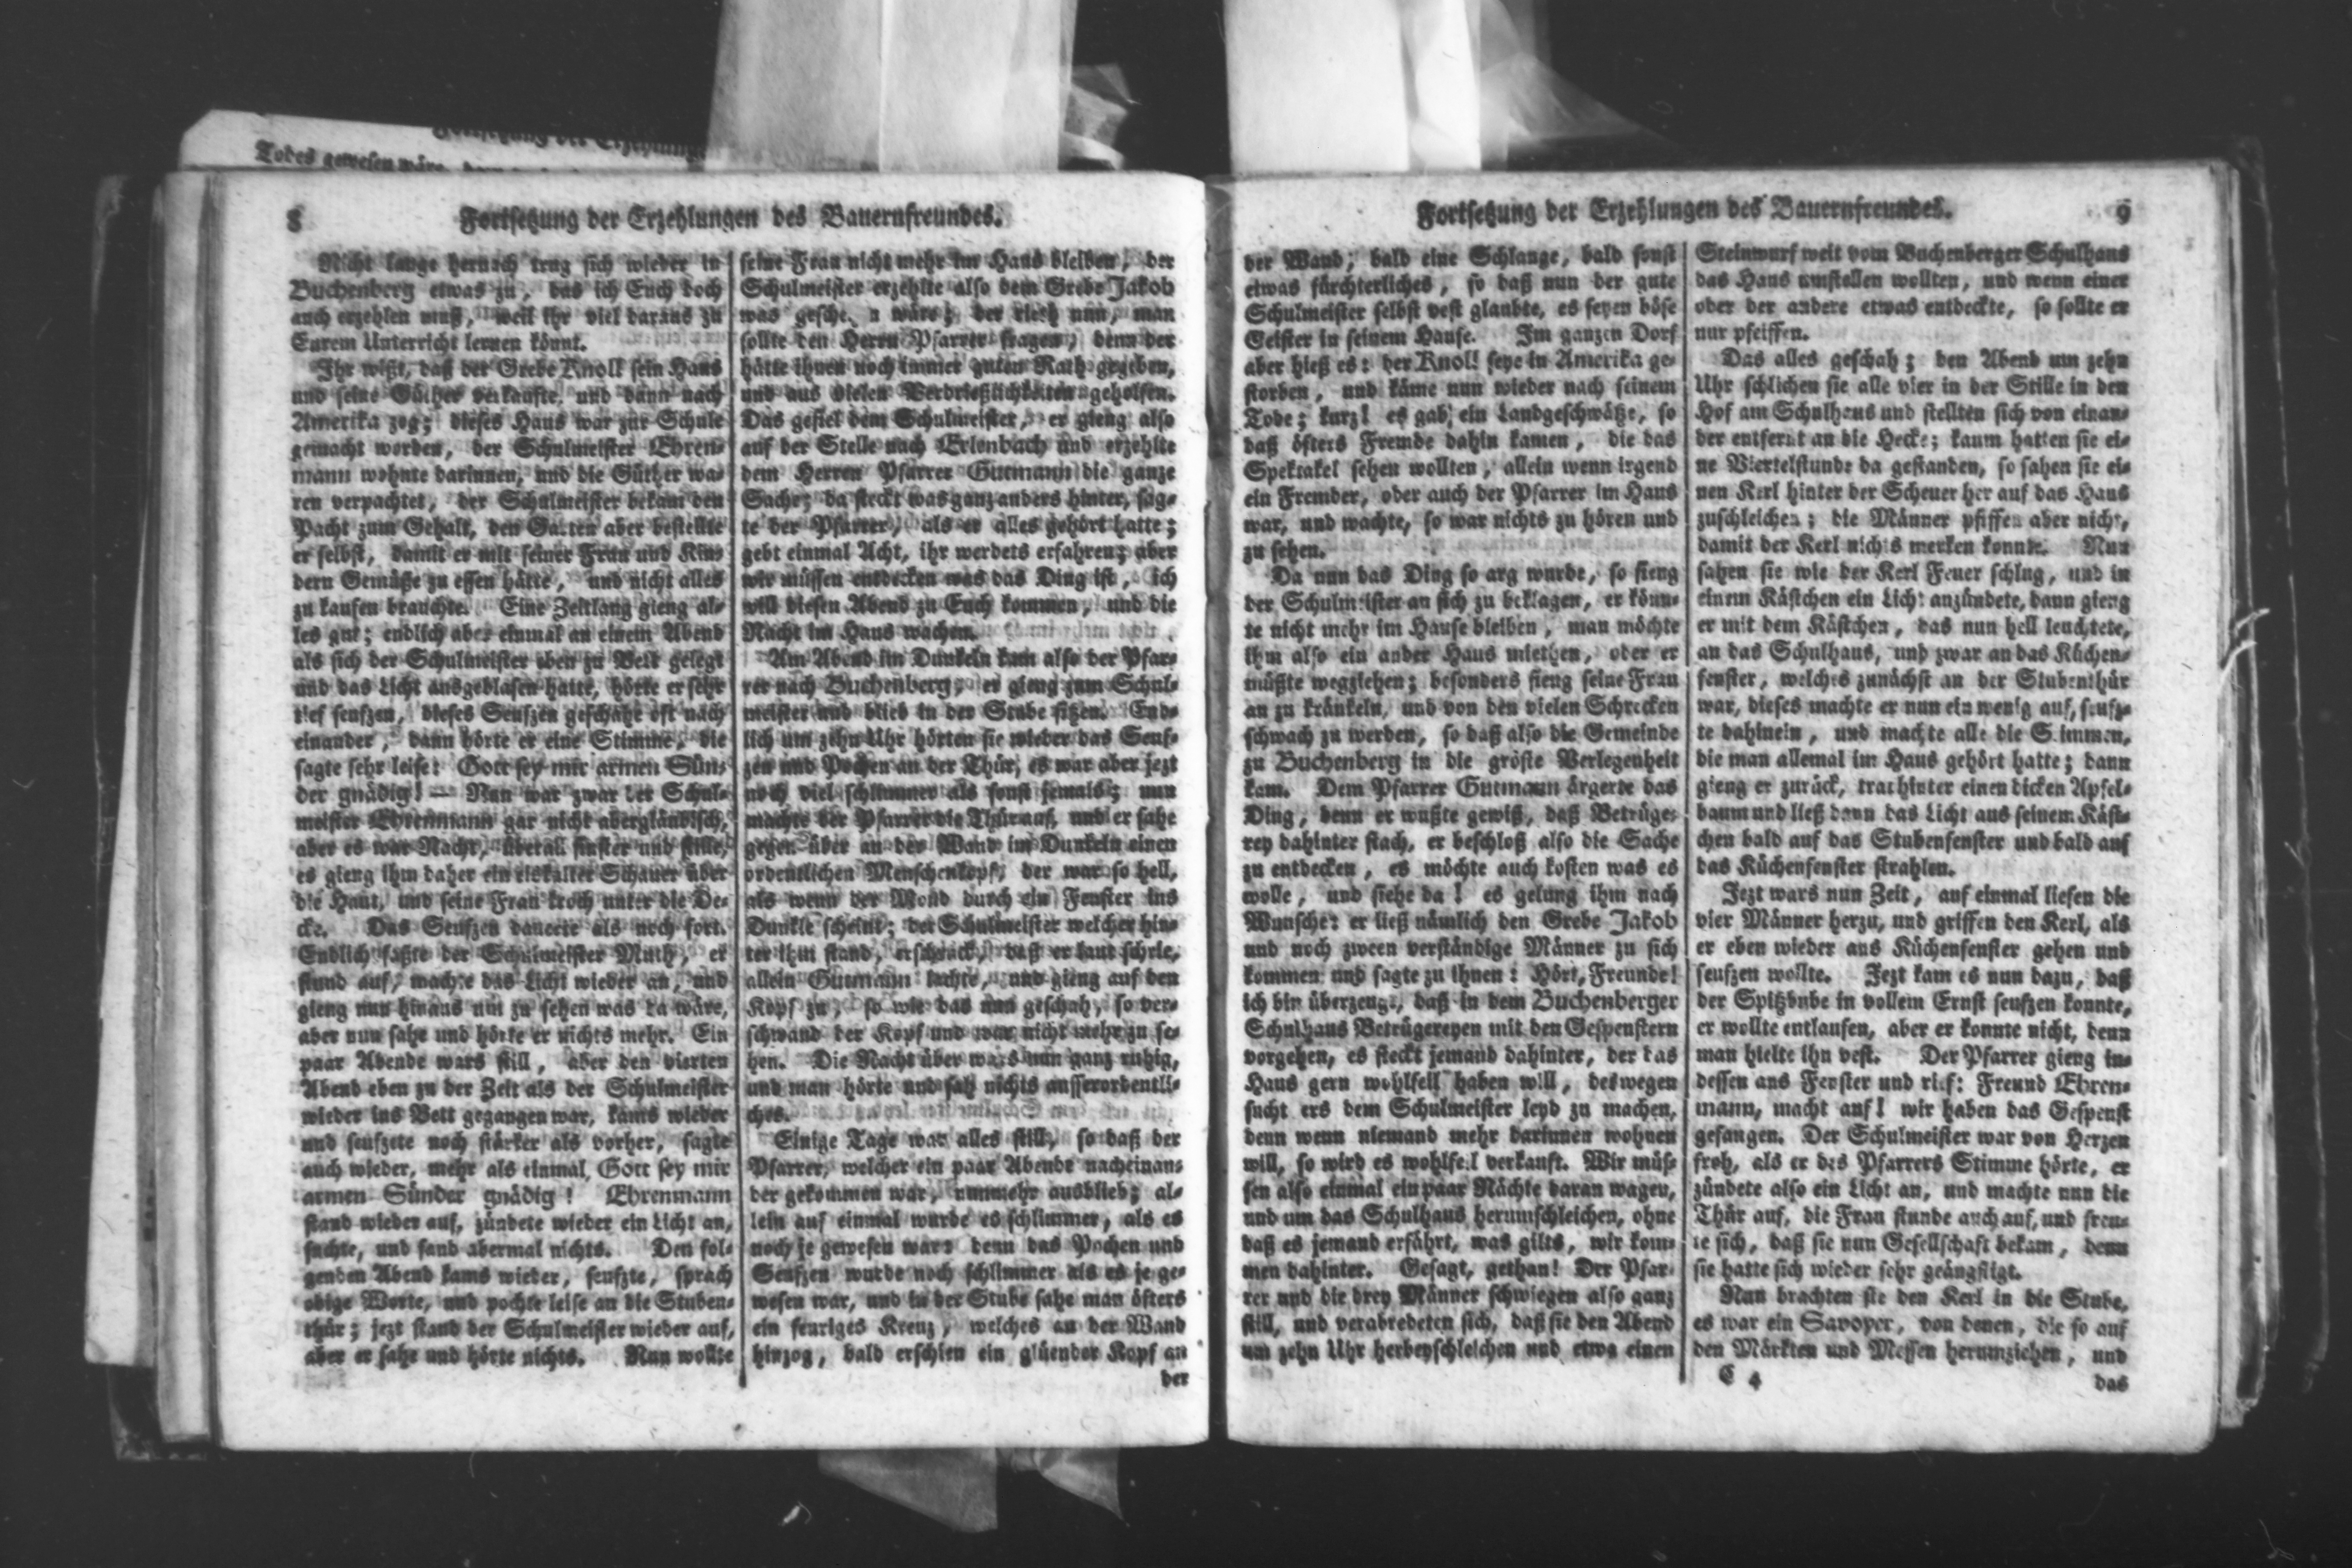 Todes gewesen wäre,
8
Fortsetzung der Erzehlungen des Bauernfreundes.
Nicht lange hernach trug sich wieder in
Buchenberg etwas zu, das ich Euch doch
auch erzehlen muß, weil ihr viel daraus zu
Eurem Unterricht lernen könnt.
Ihr wißt, daß der Grebe Knoll sein Haus
und seine Güther verkaufte, und dann nach
Amerika zog; dieses Haus war zur Schule
gemacht worden, der Schulmeister Ehren-
mann wohnte darinnen, und die Güther wa-
ren verpachtet, der Schulmeister bekam den
Pacht zum Gehalt, den Garten aber bestellte
er selbst, damit er mit seiner Frau und Kin-
dern Gemüße zu essen hätte, und nicht alles
zu kaufen brauchte. Eine Zeitlang gieng al-
les gut; endlich aber einmal an einem Abend
als sich der Schulmeister eben zu Bett gelegt
und das Licht ausgeblasen hatte, hörte er sehr
tief seufzen, dieses Seufzen geschahe oft nach
einander, dann hörte er eine Stimme, die
sagte sehr leise: Gott sey mir armen Sün-
der gnädig! — Nun war zwar der Schul-
meister Ehrenmann gar nicht abergläubisch,
aber es war Nacht, überall finster und stille,
es gieng ihm daher ein eiskalter Schauer über
die Haut, und seine Frau kroch unter die De-
cke. Das Seufzen dauerte als noch fort.
Endlich faßte der Schulmeister Muth, er
stund auf, machte das Licht wieder an, und
gieng nun hinaus um zu sehen was da wäre,
aber nun sahe und hörte er nichts mehr. Ein
paar Abende wars still, aber den vierten
Abend eben zu der Zeit als der Schulmeister
wieder ins Bett gegangen war, kams wieder
und seufzete noch stärker als vorher, sagte
auch wieder, mehr als einmal, Gott sey mir
armen Sünder gnädig! Ehrenmann
stand wieder auf, zündete wieder ein Licht an,
suchte, und fand abermal nichts. Den fol-
genden Abend kams wieder, seufzte, sprach
obige Worte, und pochte leise an die Stuben-
thür; jezt stand der Schulmeister wieder auf,
aber er sahe und hörte nichts. Nun wollte
seine Frau nicht mehr im Haus bleiben, der
Schulmeister erzehlte also dem Grebe Jakob
was gesche. n wäre; der rieth nun, man
sollte den Herrn Pfarrer fragen, denn der
hätte ihnen noch immer guten Rath gegeben,
und aus vielen Verdrießlichkeiten geholfen.
Das gefiel dem Schulmeister, er gieng also
auf der Stelle nach Erlenbach und erzehlte
dem Herren Pfarrer Gutmann die ganze
Sache; da steckt was ganz anders hinter, sag-
te der Pfarrer, als er alles gehört hatte;
gebt einmal Acht, ihr werdets erfahren; aber
wir müssen entdecken was das Ding ist, ich
will diesen Abend zu Euch kommen, und die
Nacht im Haus wachen.
Am Abend im Dunkeln kam also der Pfar-
rer nach Buchenberg, er gieng zum Schul-
meister und blieb in der Stube sitzen. End-
lich um zehn Uhr hörten sie wieder das Seuf-
zen und Pochen an der Thür, es war aber jezt
noch viel schlimmer als sonst jemals; nun
machte der Pfarrer die Thür auf, und er sahe
gegen über an der Wand im Dunkeln einen
ordentlichen Menschenkopf, der war so hell,
als wenn der Mond durch ein Fenster ins
Dunkle scheint; der Schulmeister welcher hin-
ter ihm stand, erschrack, daß er laut schrie,
allein Gutmann lachte, und gieng auf den
Kopf zu, so wie das nun geschah, so ver-
schwand der Kopf und war nicht mehr zu se-
hen. Die Nacht über wars nun ganz ruhig,
und man hörte und sah nichts ausserordentli-
ches.
Einige Tage war alles still, so daß der
Pfarrer, welcher ein paar Abende nacheinan-
der gekommen war, nunmehr ausblieb; al-
lein auf einmal wurde es schlimmer, als es
noch je gewesen war: denn das Pochen und
Seufzen wurde noch schlimmer als es je ge-
wesen war, und in der Stube sahe man öfters
ein feuriges Kreuz, welches an der Wand
hinzog, bald erschien ein glüender Kopf an
der
Fortsetzung der Erzehlungen des Bauernfreundes.
9
der Wand; bald eine Schlange, bald sonst
etwas fürchterliches, so daß nun der gute
Schulmeister selbst vest glaubte, es seyen böse
Geister in seinem Hause. Im ganzen Dorf
aber hieß es: der Knoll seye in Amerika ge-
storben, und käme nun wieder nach seinem
Tode; kurz! es gab ein Landgeschwätze, so
daß öfters Fremde dahin kamen, die das
Spektakel sehen wollten, allein wenn irgend
ein Fremder, oder auch der Pfarrer im Haus
war, und wachte, so war nichts zu hören und
zu sehen.
Da nun das Ding so arg wurde, so fieng
der Schulmeister an sich zu beklagen, er könn-
te nicht mehr im Hause bleiben, man möchte
ihm also ein ander Haus miethen, oder er
müßte wegziehen; besonders fieng seine Frau
an zu kränkeln, und von den vielen Schrecken
schwach zu werden, so daß also die Gemeinde
zu Buchenberg in die gröste Verlegenheit
kam. Dem Pfarrer Gutmann ärgerte das
Ding, denn er wußte gewiß, daß Betrüge-
rey dahinter stach, er beschloß also die Sache
zu entdecken, es möchte auch kosten was es
wolle, und siehe da! es gelung ihm nach
Wunsche: er ließ nämlich den Grebe Jakob
und noch zween verständige Männer zu sich
kommen und sagte zu ihnen: Hört, Freunde!
ich bin überzeugt, daß in dem Buchenberger
Schulhaus Betrügereyen mit den Gespenstern
vorgehen, es steckt jemand dahinter, der das
Haus gern wohlfeil haben will, deswegen
sucht ers dem Schulmeister leyd zu machen,
denn wenn niemand mehr darinnen wohnen
will, so wird es wohlfeil verkauft. Wir müs-
sen also einmal ein paar Nächte daran wagen,
und um das Schulhaus herumschleichen, ohne
daß es jemand erfährt, was gilts, wir kom-
men dahinter. Gesagt, gethan! Der Pfar-
rer und die drey Männer schwiegen also ganz
still, und verabredeten sich, daß sie den Abend
um zehn Uhr herbeyschleichen und etwa einen
Steinwurf weit vom Buchenberger Schulhaus
das Haus umstellen wollten, und wenn einer
oder der andere etwas entdeckte, so sollte er
nur pfeiffen.
Das alles geschah; den Abend um zehn
Uhr schlichen sie alle vier in der Stille in den
Hof am Schulhaus und stellten sich von einan-
der entfernt an die Hecke; kaum hatten sie ei-
ne Viertelstunde da gestanden, so sahen sie ei-
nen Kerl hinter der Scheuer her auf das Haus
zuschleichen; die Männer pfiffen aber nicht,
damit der Kerl nichts merken konnte. Nun
sahen sie wie der Kerl Feuer schlug, und in
einem Kästchen ein Licht anzündete, dann gieng
er mit dem Kästchen, das nun hell leuchtete,
an das Schulhaus, und zwar an das Küchen-
fenster, welches zunächst an der Stubenthür
war, dieses machte er nun ein wenig auf, seufz-
te dahinein, und machte alle die Stimmen,
die man allemal im Haus gehört hatte; dann
gieng er zurück, trat hinter einen dicken Apfel-
baum und ließ dann das Licht aus seinem Käst-
chen bald auf das Stubenfenster und bald auf
das Küchenfenster strahlen.
Jezt wars nun Zeit, auf einmal liefen die
vier Männer herzu, und griffen den Kerl, als
er eben wieder ans Küchenfenster gehen und
seufzen wollte. Jezt kam es nun dazu, daß
der Spitzbube in vollem Ernst seufzen konnte,
er wollte entlaufen, aber er konnte nicht, denn
man hielte ihn vest. Der Pfarrer gieng in-
dessen ans Fenster und rief: Freund Ehren-
mann, macht auf! wir haben das Gespenst
gefangen. Der Schulmeister war von Herzen
froh, als er des Pfarrers Stimme hörte, er
zündete also ein Licht an, und machte nun die
Thür auf, die Frau stunde auch auf, und freu-
te sich, daß sie nun Gesellschaft bekam, denn
sie hatte sich wieder sehr geängstigt.
Nun brachten sie den Kerl in die Stube,
es war ein Savoyer, von denen, die so auf
den Märkten und Messen herumziehen, und
C 4
das